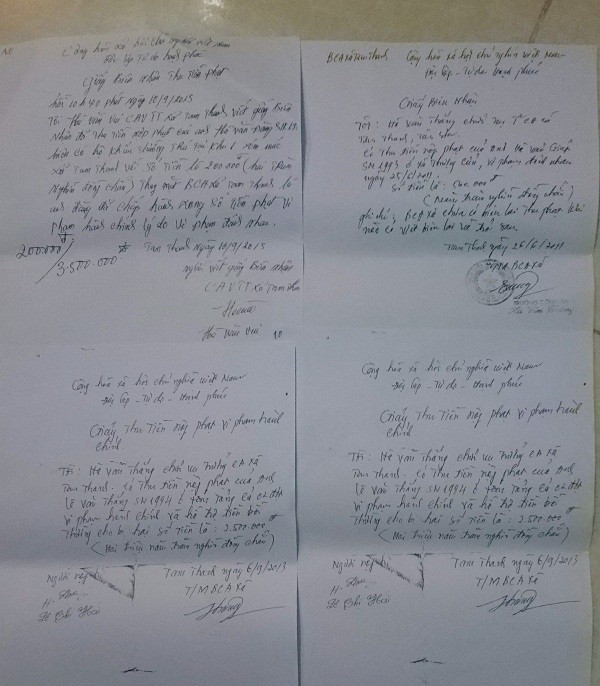 Cộng hòa xã hội chủ nghĩa việt nam
Độc lập Tự do hạnh phúc
Giấy Biên nhận Thu Tiền phạt
hồi 10 h 40 phút ngày 10/9/2013
Tôi hà văn vui C.A.V.T.T xã Tam Thanh viết giấy Biên
Nhận đã Thu Tiền nộp phạt của anh
hiện có hộ khẩu thường Trú tại Khu 1 xóm múc
xã Tam Thanh với Số Tiền là 200.000đ (hai Trăm
Nghìn đồng chẵn) Thay mặt BCA xã Tam Thanh là
anh đã chấp hành xong số Tiền phạt vi
phạm hành chính lý do vi phạm đánh nhau.
200.000/
/3.500.000
Tam Thanh ngày 10/9/2013
người viết giấy Biên nhận
C.A.V.T.T xã Tam Thanh
hà văn vui
BCA xã Tam Thanh
Cộng hòa xã hội chủ nghĩa việt nam
Độc lập - Tự do - Hạnh phúc
Giấy Biên Nhận
Tôi: Hà văn Thắng chức vụ T CA xã
Tam Thanh, Tân Sơn.
Có Thu tiền nộp phạt của anh Hà văn
SN 1993 ở xã , vi phạm đánh nhau
ngày 25/6/2011.
Số tiền là: 500.000đ
(năm trăm nghìn đồng chẵn)
ghi chú, BCA xã chưa có biên lai thu phạt khi
nào có viết biên lai và trả sau.
Tam Thanh ngày 26/6/2011
T/M BCA xã
Hà Văn Thắng
Cộng hòa xã hội chủ nghĩa việt Nam
Độc lập - Tự do - Hạnh phúc
Giấy Thu Tiền nộp phạt vi phạm hành
chính
Tôi: Hà văn Thắng chức vụ Trưởng CA xã
Tam Thanh. Có Thu tiền nộp phạt của anh
lê văn Thắng SN 1994 ở
vi phạm hành chính và hỗ trợ tiền bồi
Thường cho hai số tiền là: 2.500.000đ
(Hai triệu năm trăm nghìn đồng chẵn)
Người nộp
Tam Thanh ngày 6/9/2013
T/M BCA xã
Cộng hòa xã hội chủ nghĩa việt Nam
Độc lập - Tự do - Hạnh phúc
Giấy Thu Tiền nộp phạt vi phạm hành
chính
Tôi: Hà văn Thắng chức vụ Trưởng CA xã
Tam Thanh. Có Thu tiền nộp phạt của anh
lê văn Thắng SN 1994 ở
vi phạm hành chính và hỗ trợ tiền bồi
Thường cho hai số tiền là: 2.500.000đ
(Hai triệu năm trăm nghìn đồng chẵn)
Người nộp
Tam Thanh ngày 6/9/2013
T/M BCA xã